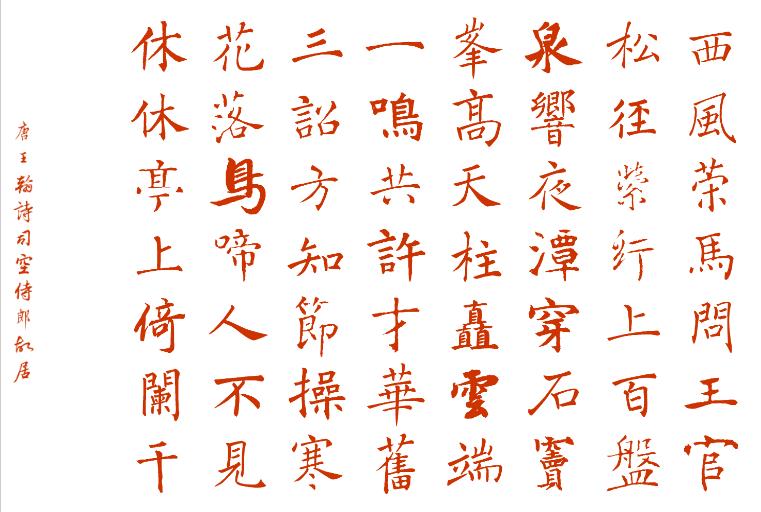 西風荣馬問王官
松徑紫行上百盤
泉響夜潭穿石竇
峯高天柱矗雲端
一鳴共許才華舊
三詔方知節操寒
花落鳥啼人不見
休休亭上倚闌干
唐王翰詩司空侍郎故居